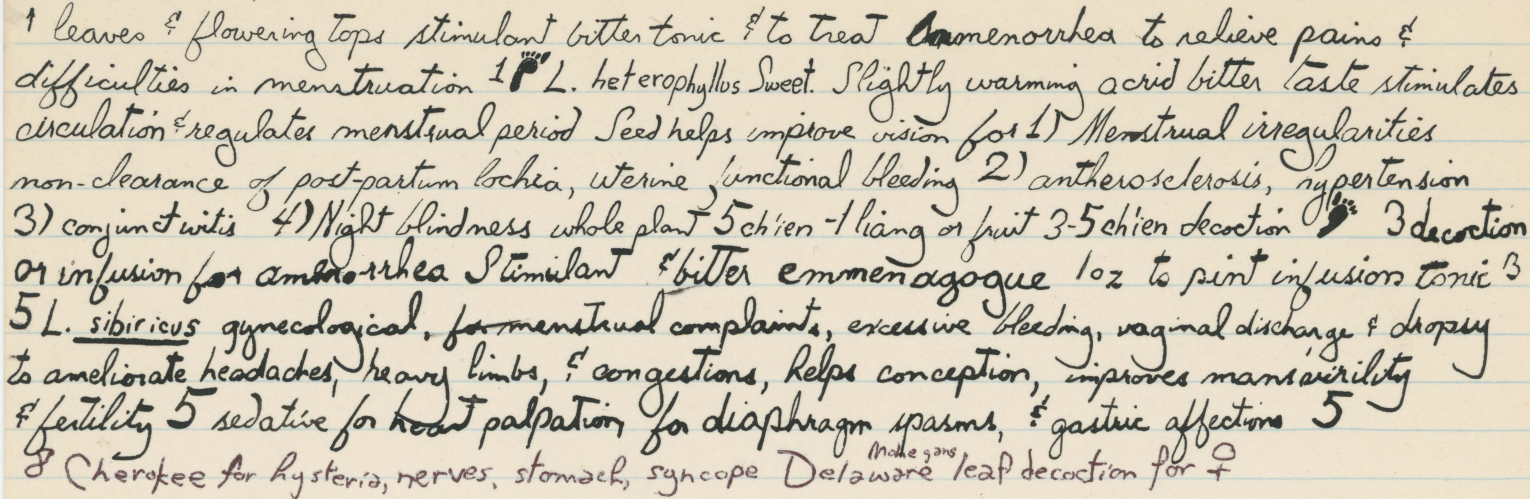 1 leaves & flowering tops stimulant bitter tonic & to treat ammenorrhea to relieve pains &
difficulties in menstruation 1 L. heterophyllus Sweet. Slightly warming acrid bitter taste stimulates
circulation & regulates menstrual period Seed helps improve vision for 1) Menstrual irregularities
non-clearance of post-partum lochia, uterine functional bleeding 2) antherosclerosis, hypertension
3) conjunctivitis 4) Night blindness whole plant 5 ch'ien -1 liang or fruit 3-5 ch'ien decoction 3 decoction
or infusion for amenorrhea Stimulant & bitter emmenagogue 1 oz to pint infusion tonic 3
5 L. sibiricus gynecological, for menstrual complaints, excessive bleeding, vaginal discharge & dropsy
to ameliorate headaches, heavy limbs, & congestions, helps conception, improves mans virility
& fertility 5 sedative for heart palpation, for diaphragm spasms, & gastric affections 5
8 Cherokee for hysteria, nerves, stomach, syncope Delaware Mohegans leaf decoction for ♀